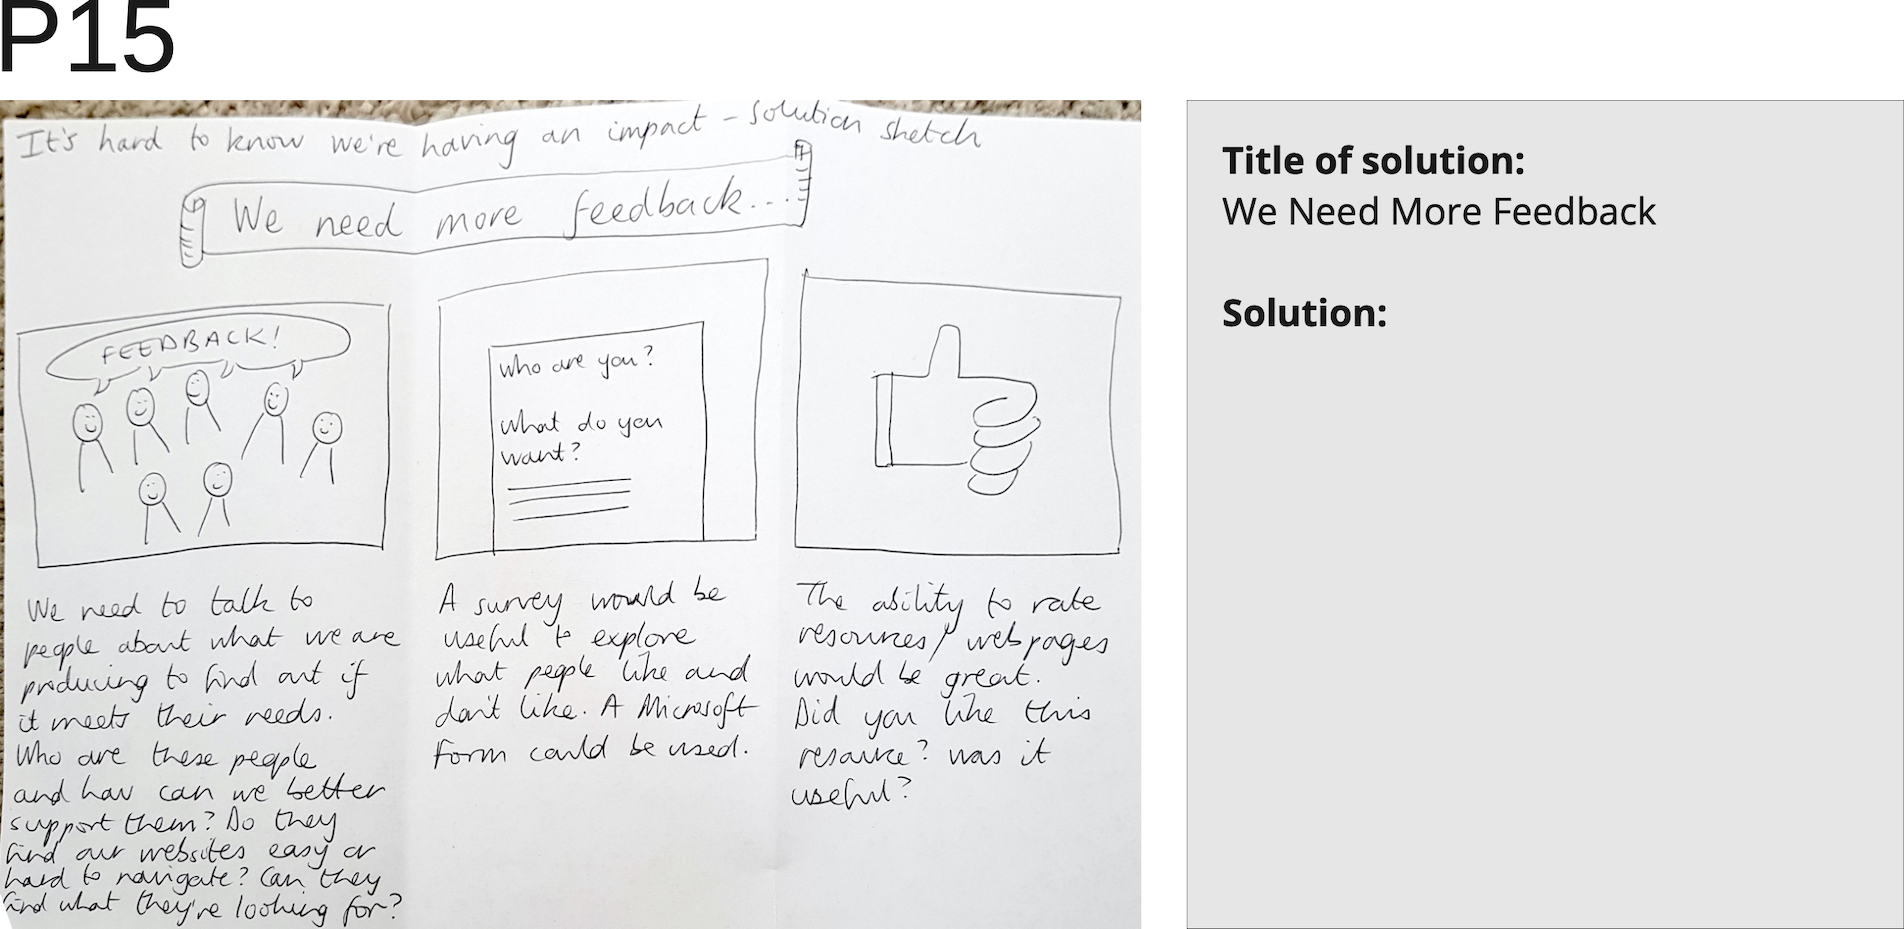 P15
It's hard to know we're having an impact - solution sketch
We need more feedback...
FEEDBACK!
We need to talk to
people about what we are
producing to find out if
it meets their needs.
Who are these people
and how can we better
support them? Do they
find our websites easy or
hard to navigate? Can they
find what they're looking for?
who are you?
what do you
want?
A survey would be
useful to explore
what people like and
don't like. A Microsoft
Form could be used.
The ability to rate
resources/webpages
would be great.
Did you like this
resource? was it
useful?
Title of solution:
We Need More Feedback
Solution: